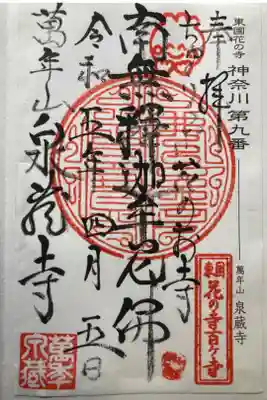 東國花の寺
神奈川 第九番
萬年山 泉蔵寺
奉拝
花のお寺
南無釋迦牟尼佛
令和五年四月五日
萬年山泉蔵寺
東国花の寺百ヶ寺
萬年
泉蔵